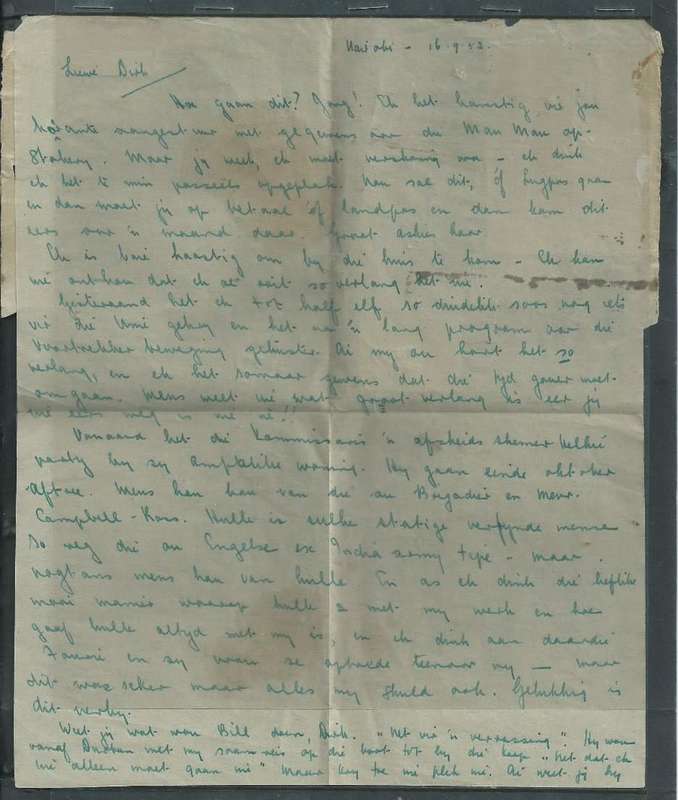 Nairobi - 16.9.52.
Liewe Dirk
Hoe gaan dit? Gong! Ek het haastig vir jou
koerante aangestuur met gegewens oor die Mau Mau op-
stokery. Maar jy weet, ek moet verskoning vra - ek dink
ek het te min posseëls opgeplak. Nou sal dit, óf lugpos gaan
en dan moet jy op betaal óf landpos en dan kom dit
eers oor 'n maand daar. Groot askies hoor.
Ek is baie haastig om by die huis te kom - Ek kan
nie onthou dat ek al ooit so verlang het nie.
Gisteraand het ek tot half elf, so duidelik soos nog iets
vir die Unie gekry en het na 'n lang program oor die
Voortrekker beweging geluister. Ai my ou hart het so
verlang, en ek het sommer gewens dat die tyd gouer moet
omgaan. Mens weet nie wat groot verlang is eer jy
nie eers weg is nie nè!!
Vanaand het die Kommissaris 'n afskeids skemerkelkie
party by sy amptelike woning. Hy gaan einde oktober
aftree. Mens hou van die ou Brigadier en Mevr.
Campbell-Ross. Hulle is sulke statige verfynde mense
so reg die ou Engelse ex India army tipe - maar
nogtans mens hou van hulle. En as ek dink die lieflike
mooi manier waarop hulle met my werk en hoe
gaaf hulle altyd met my is, en ek dink aan daardie
en sy vrou se optrede teenoor my - maar
dit was seker maar alles my skuld ook. Gelukkig is
dit verby.
Weet jy wat wou Bill doen, Dirk. "Net vir 'n verrassing". Hy wou
vanaf Durban met my saam reis op die boot tot by die Kaap "net dat ek
nie alleen moet gaan nie" maar kry toe nie plek nie. Ai weet jy hy